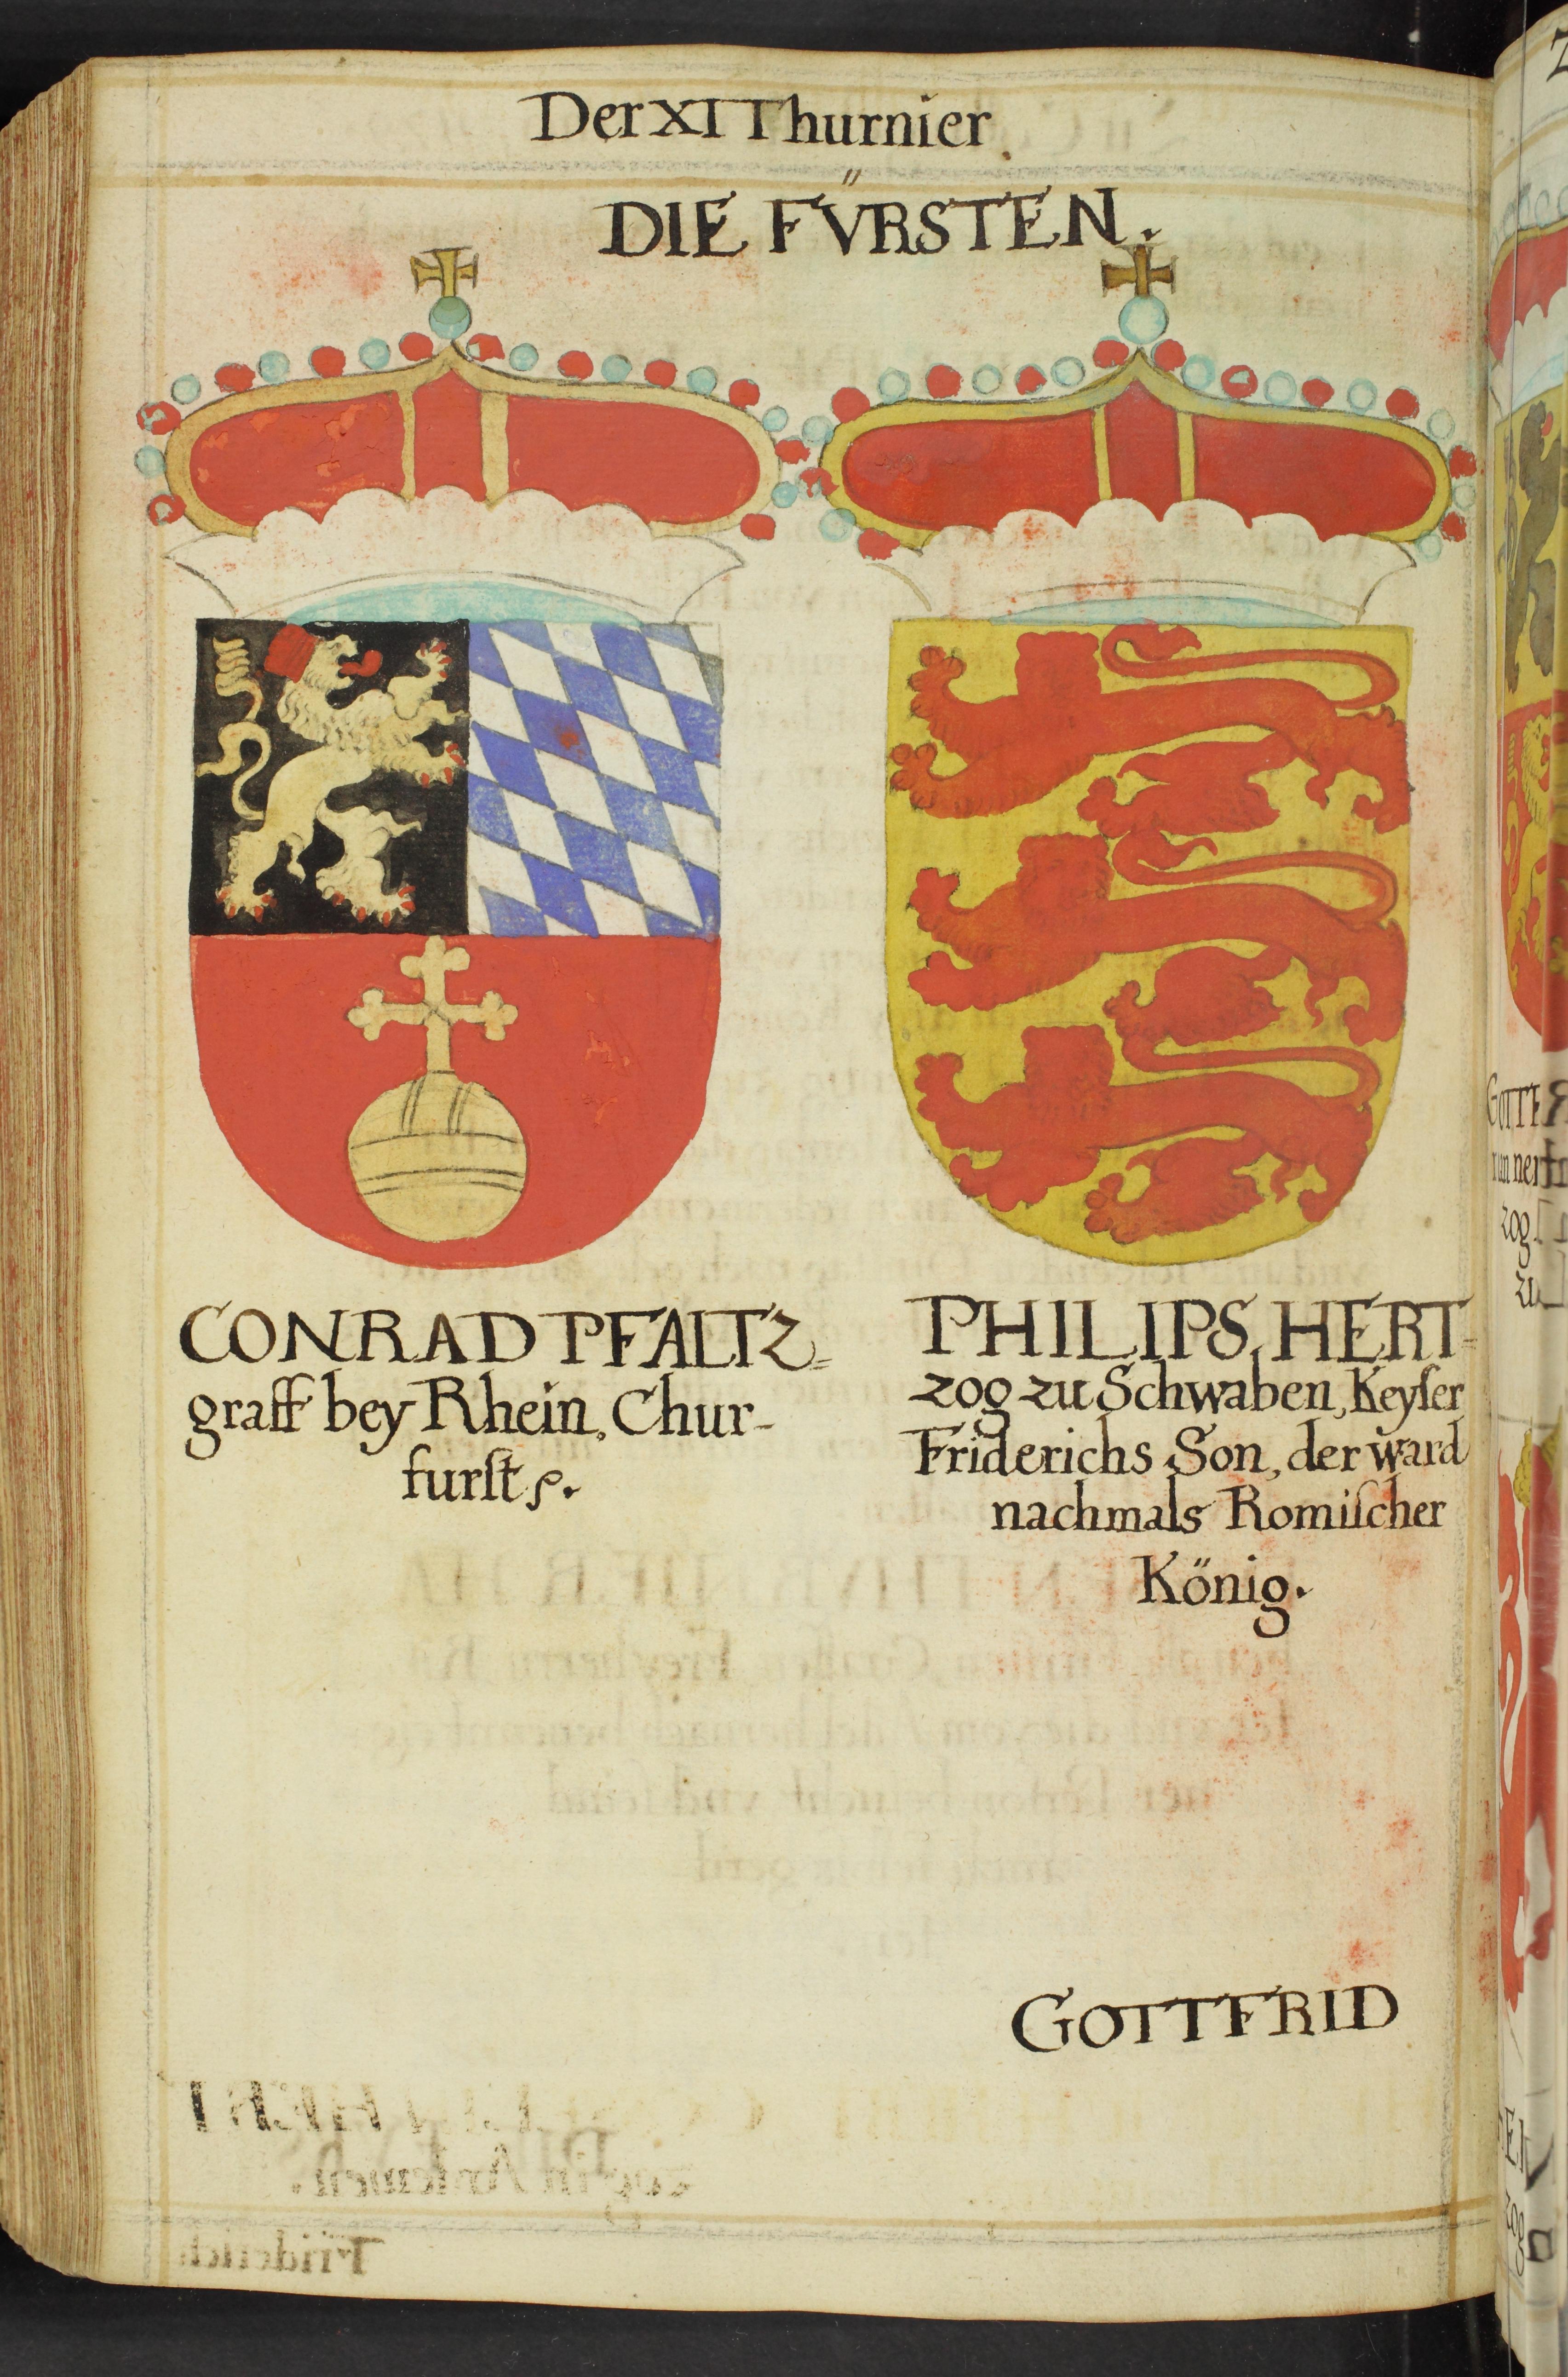 Der XI Thurnier
DIE FV̈RSTEN.
CONRAD PFALTZ=
graff bey Rhein, Chur-
furſt ꝛ.
PHILIPS, HERT-
zog zu Schwaben, Keyſer
Friderichs Son, der ward
nachmals Romiſcher
König.
GOTTFRID